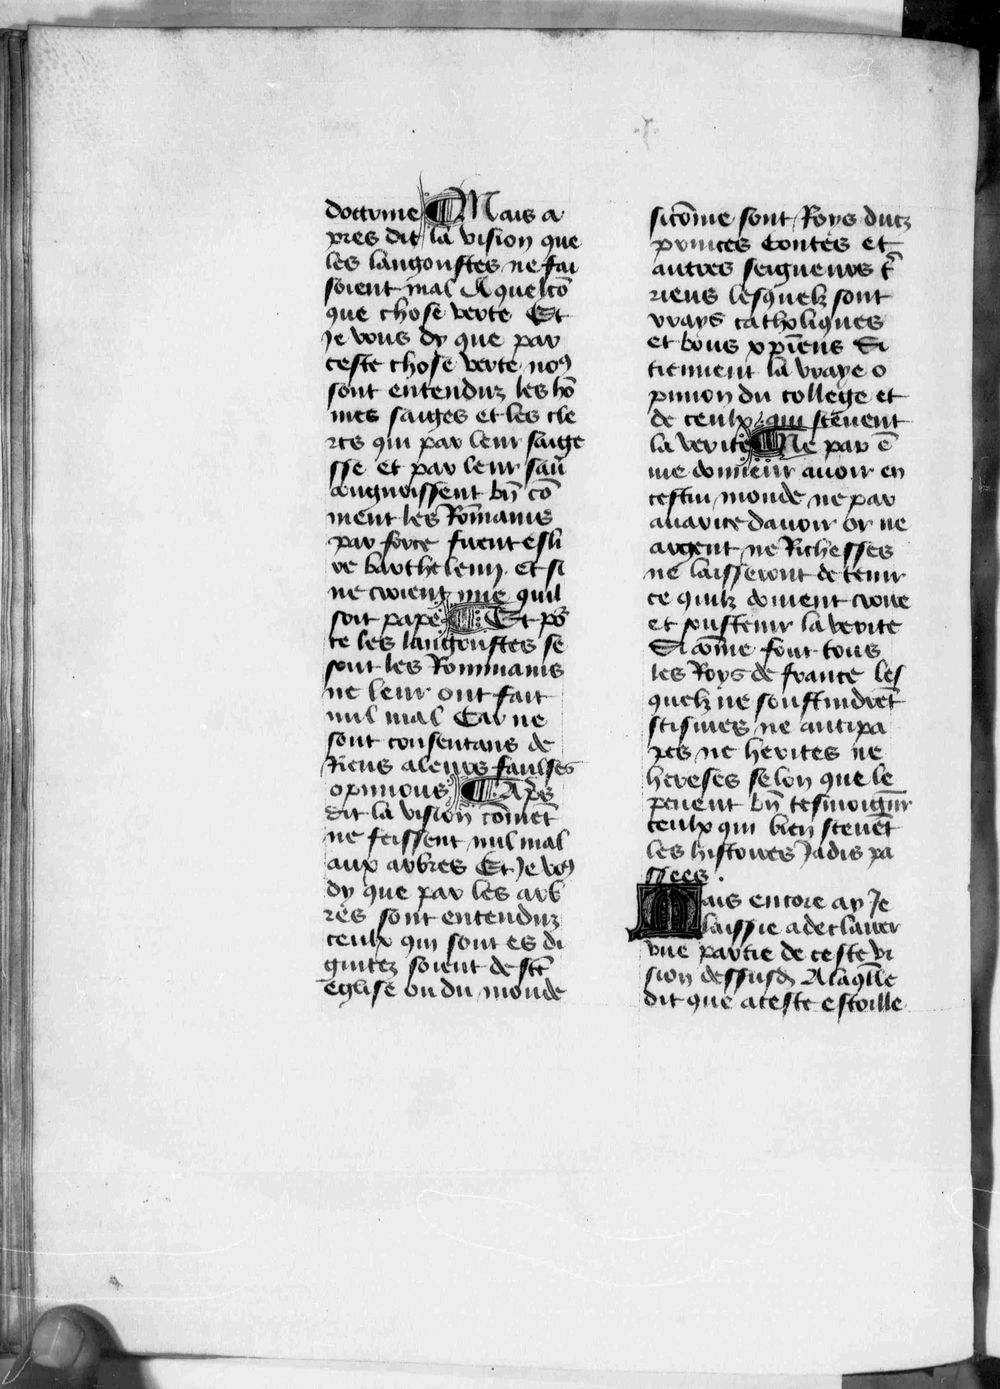 doctrine ¶ Mais a
pres dit la vision que
les langoustes ne fai
soient mal A quelcō
que chose verte Et
Je vous dy que par
ceste chose verte no⁹
sont entenduz les hō
mes saiges et les cle
rcs qui par leur saige
sse et par leur sau̅
congnoissent bn̄ cō
ment les Rōmanis
par force furent esli
re barthelemy. et si
ne croient mie quil
soit pape ¶ Et po⁹
ce les langoustes se
sont les Rommanis
ne leur ont fait
nul mal Car ne
sont consentans de
Riens a leurs faulses
opinions ¶ Ap̄s
dit la vision cōmēt
ne feissent nul mal
aux arbres Et Je vo⁹
dy que par les arb
res sont entenduz
ceulx qui sont es di
gnitez soient de scē
eglise ou du monde
sicōme sont Roys ducz
princes Contes et
autres seigneurs t̄r
riens lesquelz sont
vrays catholiques
et bons xp̄iens Si
tiennent la vraye o
pinion du college et
de ceulx qui scevent
la verite ¶ Ne par ē
vie donneur avoir en
cestui monde ne par
avarice davoir or ne
argent ne Richesses
ne laisseront de tenir
ce quilz doivent croire
et soustenir la verite
Si cōme font tous
les Roys de france les
quelz ne soustindrēt
scismes ne antipa
pes ne herites ne
hereses selon que le
peuent bn̄ tesmoign̄r
ceulx qui bien scevēt
les histoires Jadis pa
ssees.
Mais encore ay Je
laissie a declairer
une partie de ceste vi
sion dessusd̄ A laq̄lle
dit que a ceste estoille